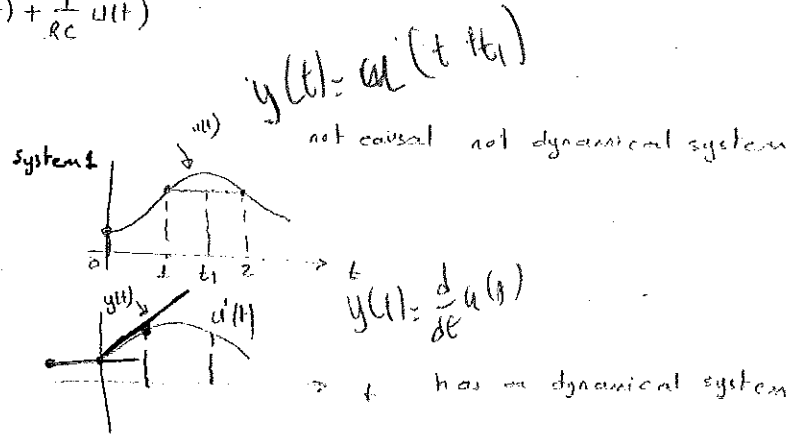 ) + 1/RC u(t)
y(t) = u(t + t1)
u(t)
not causal not dynamical system
System 1
0 1 t1 2 t
y(t) u'(t)
y(t) = d/dt u(t)
t has dynamical system